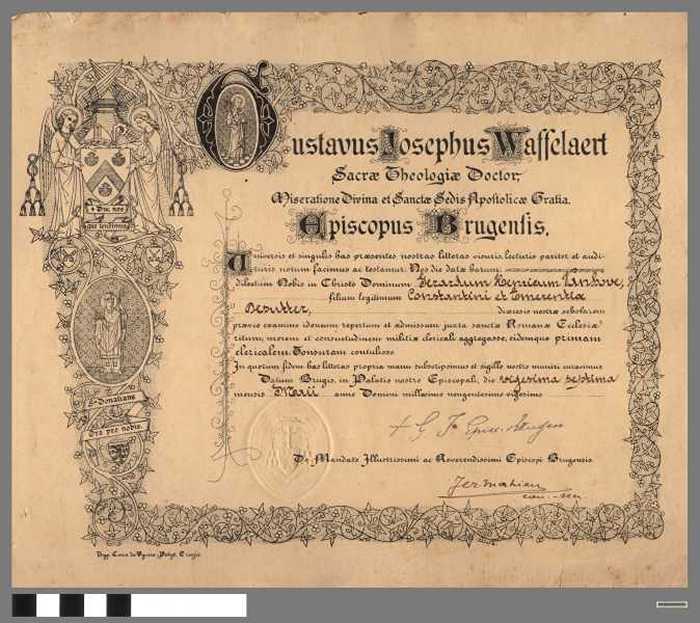 Gustavus Josephus Waffelaert
Sacræ Theologiæ Doctor,
Miseratione Divina et Sanctæ Sedis Apostolicæ Gratia,
Episcopus Brugensis,
Universis et singulis has præsentes nostras litteras visuris, lecturis pariter et audi-
turis notum facimus ac testamur: Nos die datæ harum
dilectum Nobis in Christo Dominum Gerardum Henricum Vanhove,
filium legitimum Constantini et Emerentiæ
Desutter, diœcesis nostræ scholarem
prævio examine idoneum repertum et admissum juxta sanctæ Romanæ Ecclesiæ
ritum, morem et consuetudinem militiæ clericali aggregasse, eidemque primam
clericalem Tonsuram contulisse.
In quorum fidem has litteras propria manu subscripsimus et sigillo nostro muniri curavimus.
Datum Brugis, in Palatio nostro Episcopali, die vigesima septima
mensis Martii anno Domini millesimo nongentesimo vigesimo
+ G. J. Episc. Brugen
De Mandato Illustrissimi ac Reverendissimi Episcopi Brugensis.
Jer Mahieu
can. secr
S. Donatiane
Ora pro nobis.